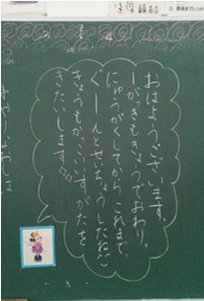 おはようございます。
一がっきもきょうでおわり。
にゅうがくしてからこれまで、
ぐーんとせいちょうしたね♡
きょうもかっこいいすがたを
きたいします